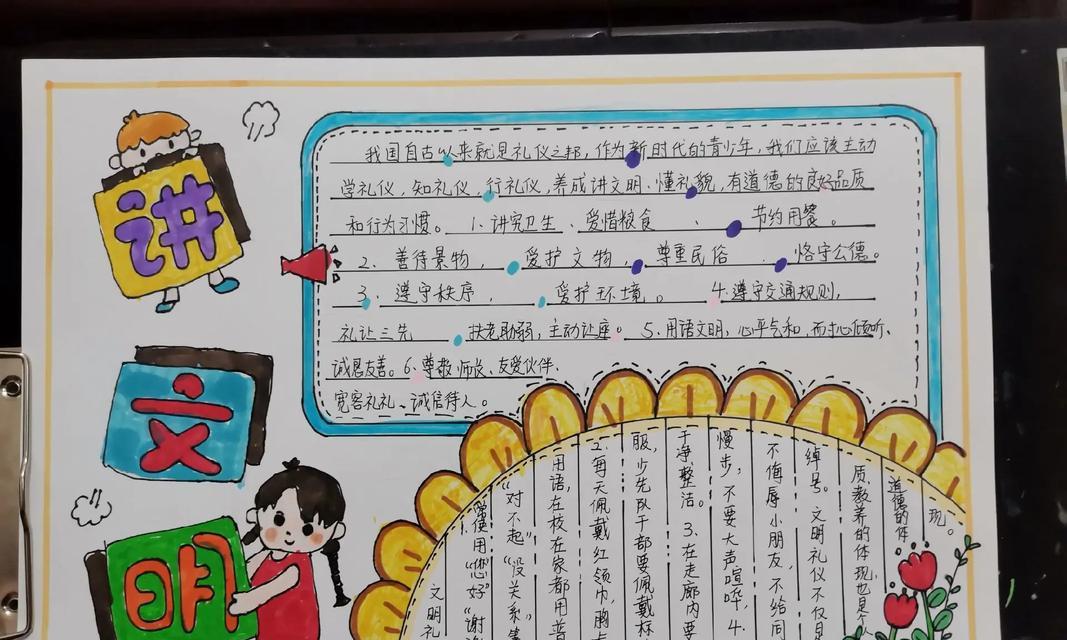 讲
文
明
我国自古以来就是礼仪之邦，作为新时代的青少年，我们应该主动
学礼仪、知礼仪、行礼仪，养成讲文明、懂礼貌，有道德的良好品质
和行为习惯。1.讲究卫生、爱惜粮食、节约用餐。
2、善待景物，爱护文物，尊重民俗、恪守公德。
3、遵守秩序，爱护环境。4.遵守交通规则，
礼让三先、扶老助弱，主动让座。5、用语文明，心平气和，耐心倾听、
诚恳友善。6、尊敬师长、友爱伙伴、
宽客礼礼、诚信待人。
现。
道德的体
质、教养的体现，也是个人
绰号。文明礼仪不仅是
不侮辱小朋友，不给同
慢步，不要大声喧哗，4.
干净整洁。3、在走廊内要
服，少先队干部要佩戴标
2、每天佩戴红领巾，胸
用语，在校在家都用普
“对不起”“没关系”等
1.常使用“您好”“谢谢
文明礼